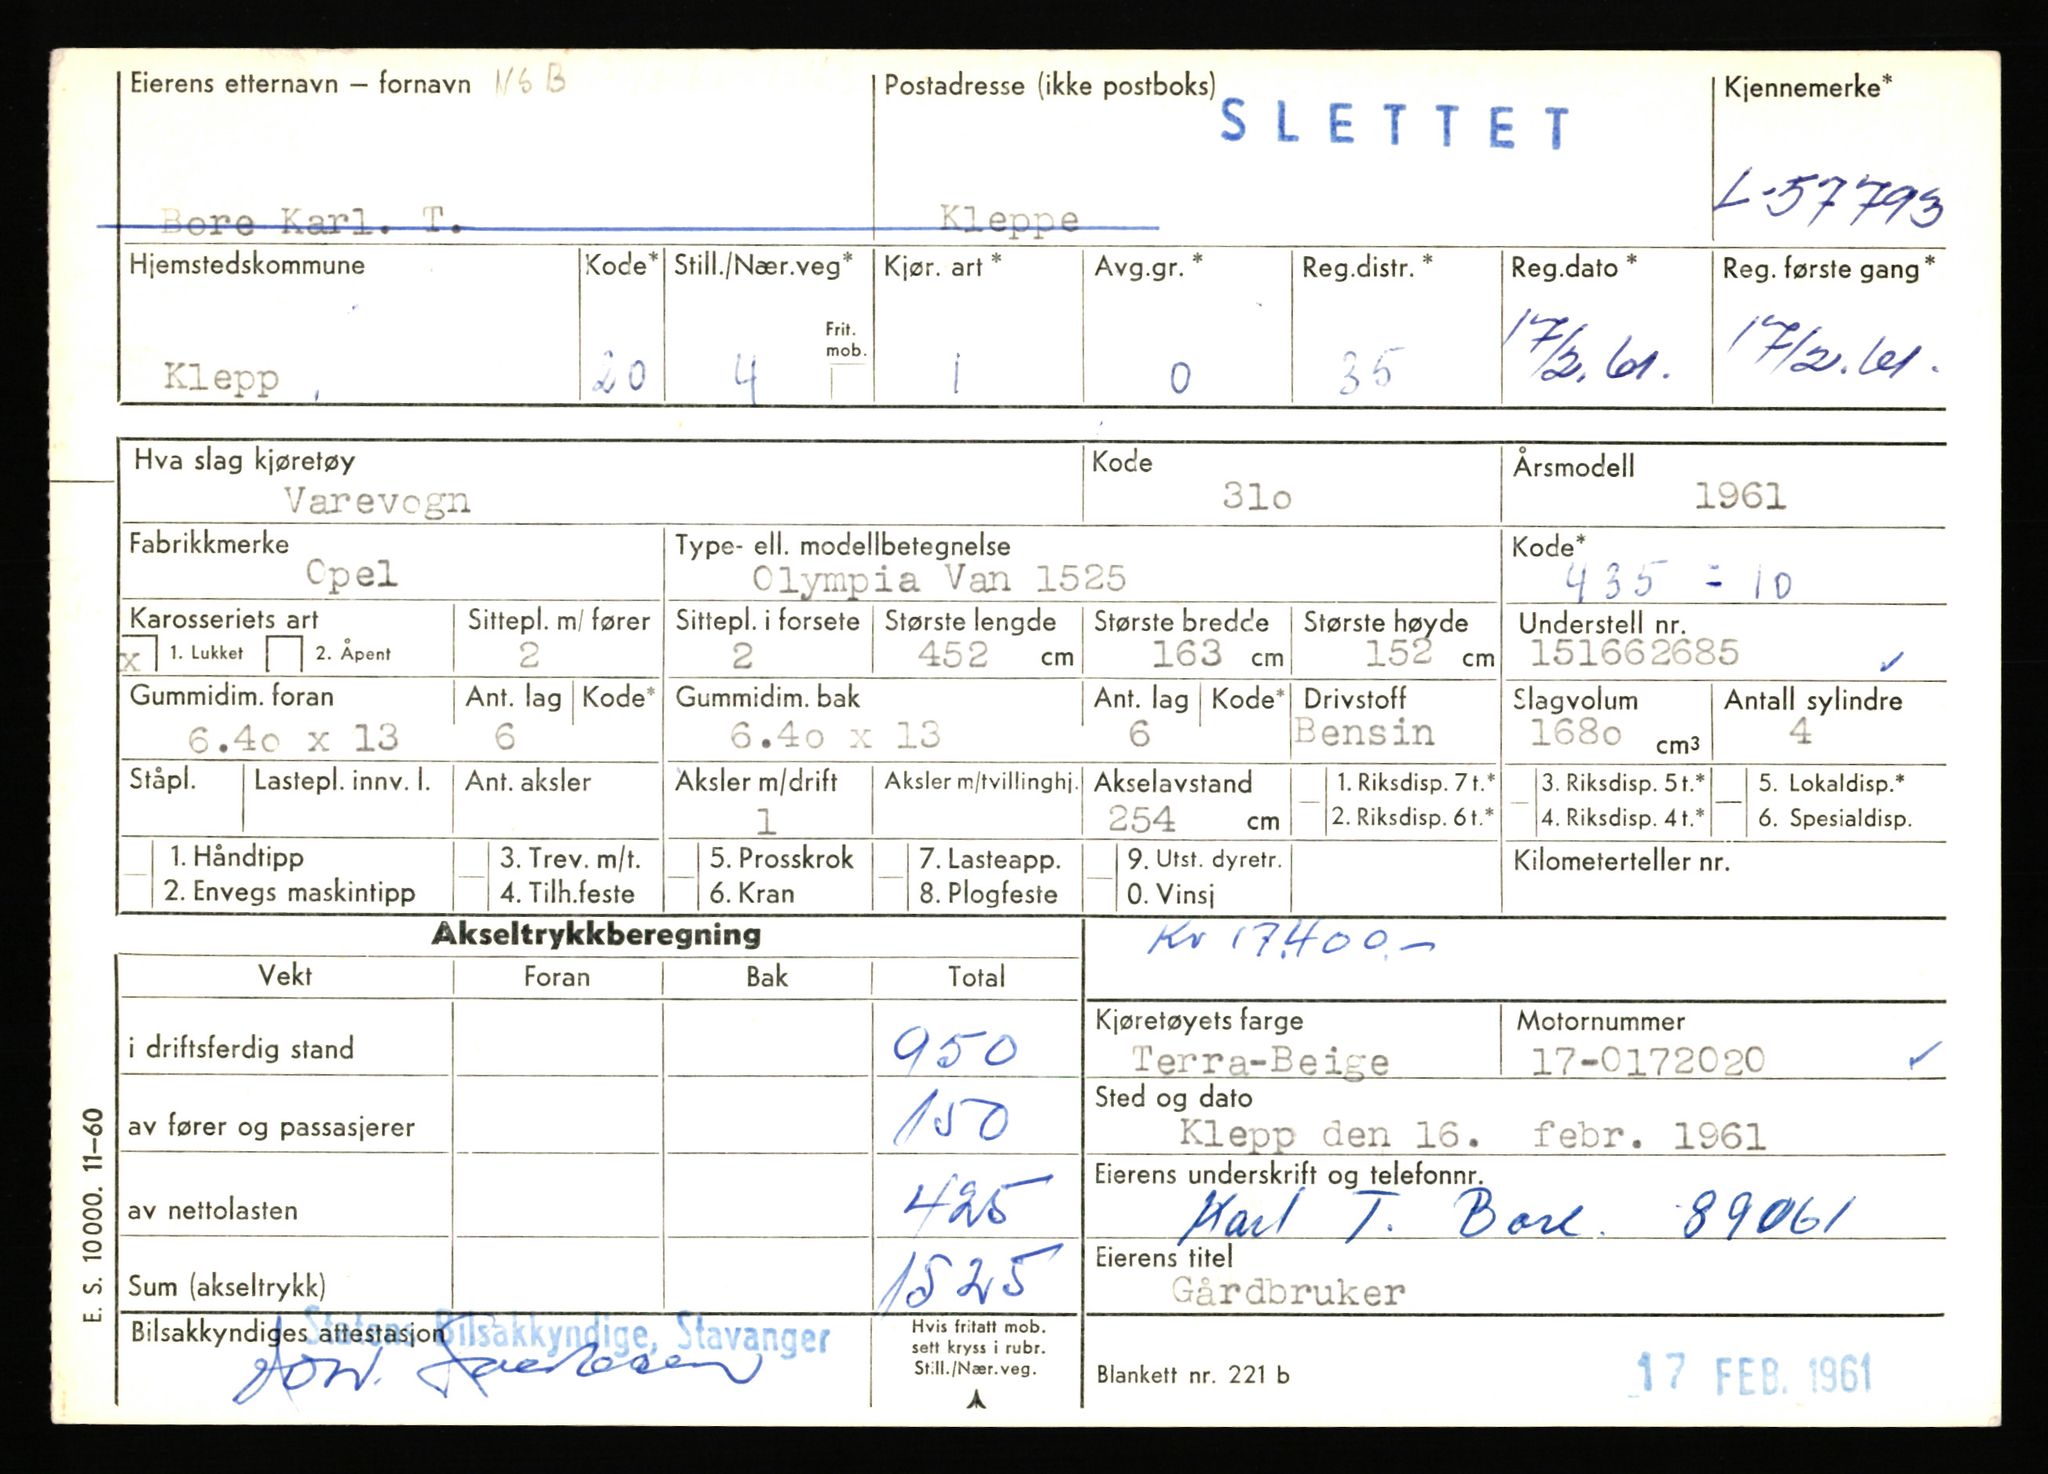 Eierens etternavn – fornavn NSB
Postadresse (ikke postboks)
SLETTET
Kjennemerke*
Bore Karl. T.
Kleppe
L-57793
Hjemstedskommune
Kode*
Still./Nær.veg*
Kjør. art *
Avg.gr. *
Reg.distr. *
Reg.dato *
Reg. første gang*
Frit. mob.
Klepp
20
4
1
0
35
17/2. 61.
17/2. 61.
Hva slag kjøretøy
Kode
Årsmodell
Varevogn
31o
1961
Fabrikkmerke
Type- ell. modellbetegnelse
Kode*
Opel
Olympia Van 1525
435 = 10
Karosseriets art
Sittepl. m/ fører
Sittepl. i forsete
Største lengde
Største bredde
Største høyde
Understell nr.
x 1. Lukket
2. Åpent
2
2
452 cm
163 cm
152 cm
151662685 ✓
Gummidim. foran
Ant. lag
Kode*
Gummidim. bak
Ant. lag
Kode*
Drivstoff
Slagvolum
Antall sylindre
6.4o x 13
6
6.4o x 13
6
Bensin
168o cm3
4
Ståpl.
Lastepl. innv. l.
Ant. aksler
Aksler m/drift
Aksler m/tvillinghj.
Akselavstand
1. Riksdisp. 7 t.*
3. Riksdisp. 5 t.*
5. Lokaldisp.*
1
254 cm
2. Riksdisp. 6 t.*
4. Riksdisp. 4 t.*
6. Spesialdisp.
1. Håndtipp
3. Trev. m/t.
5. Prosskrok
7. Lasteapp.
9. Utst. dyretr.
Kilometerteller nr.
2. Envegs maskintipp
4. Tilh.feste
6. Kran
8. Plogfeste
0. Vinsj
Akseltrykkberegning
Kr 17.400.-
Vekt
Foran
Bak
Total
i driftsferdig stand
950
av fører og passasjerer
150
av nettolasten
425
Sum (akseltrykk)
1525
Kjøretøyets farge
Motornummer
Terra-Beige
17-0172020 ✓
Sted og dato
Klepp den 16. febr. 1961
Eierens underskrift og telefonnr.
Karl T. Bore. 89061
Eierens titel
Gårdbruker
Bilsakkyndiges attestasjon
Statens Bilsakkyndige, Stavanger
Hvis fritatt mob.
sett kryss i rubr.
Still./Nær.veg.
Blankett nr. 221 b
17 FEB. 1961
E. S. 10000. 11–60